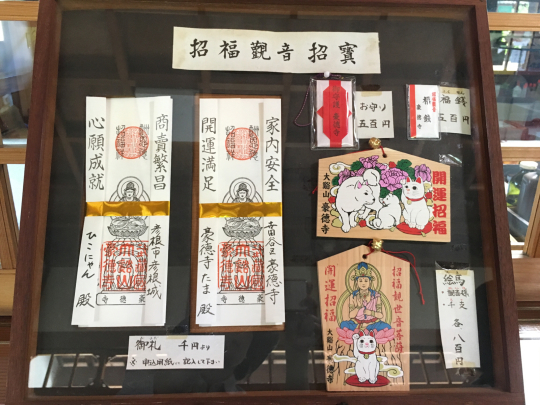 招福觀音招寳
家内安全
開運満足
世田谷区豪徳寺
豪徳寺たま殿
商賣繁昌
心願成就
彦根市彦根城
ひこにゃん 殿
豪徳寺
豪徳寺
御札 千円より
※申込用紙に記入して下さい
お守り
五百円
豪徳寺
福銭
五百円
豪徳寺
開運招福
大谿山 豪徳寺
招福観世音菩薩
開運招福
大谿山 豪徳寺
絵馬
干支
各八百円